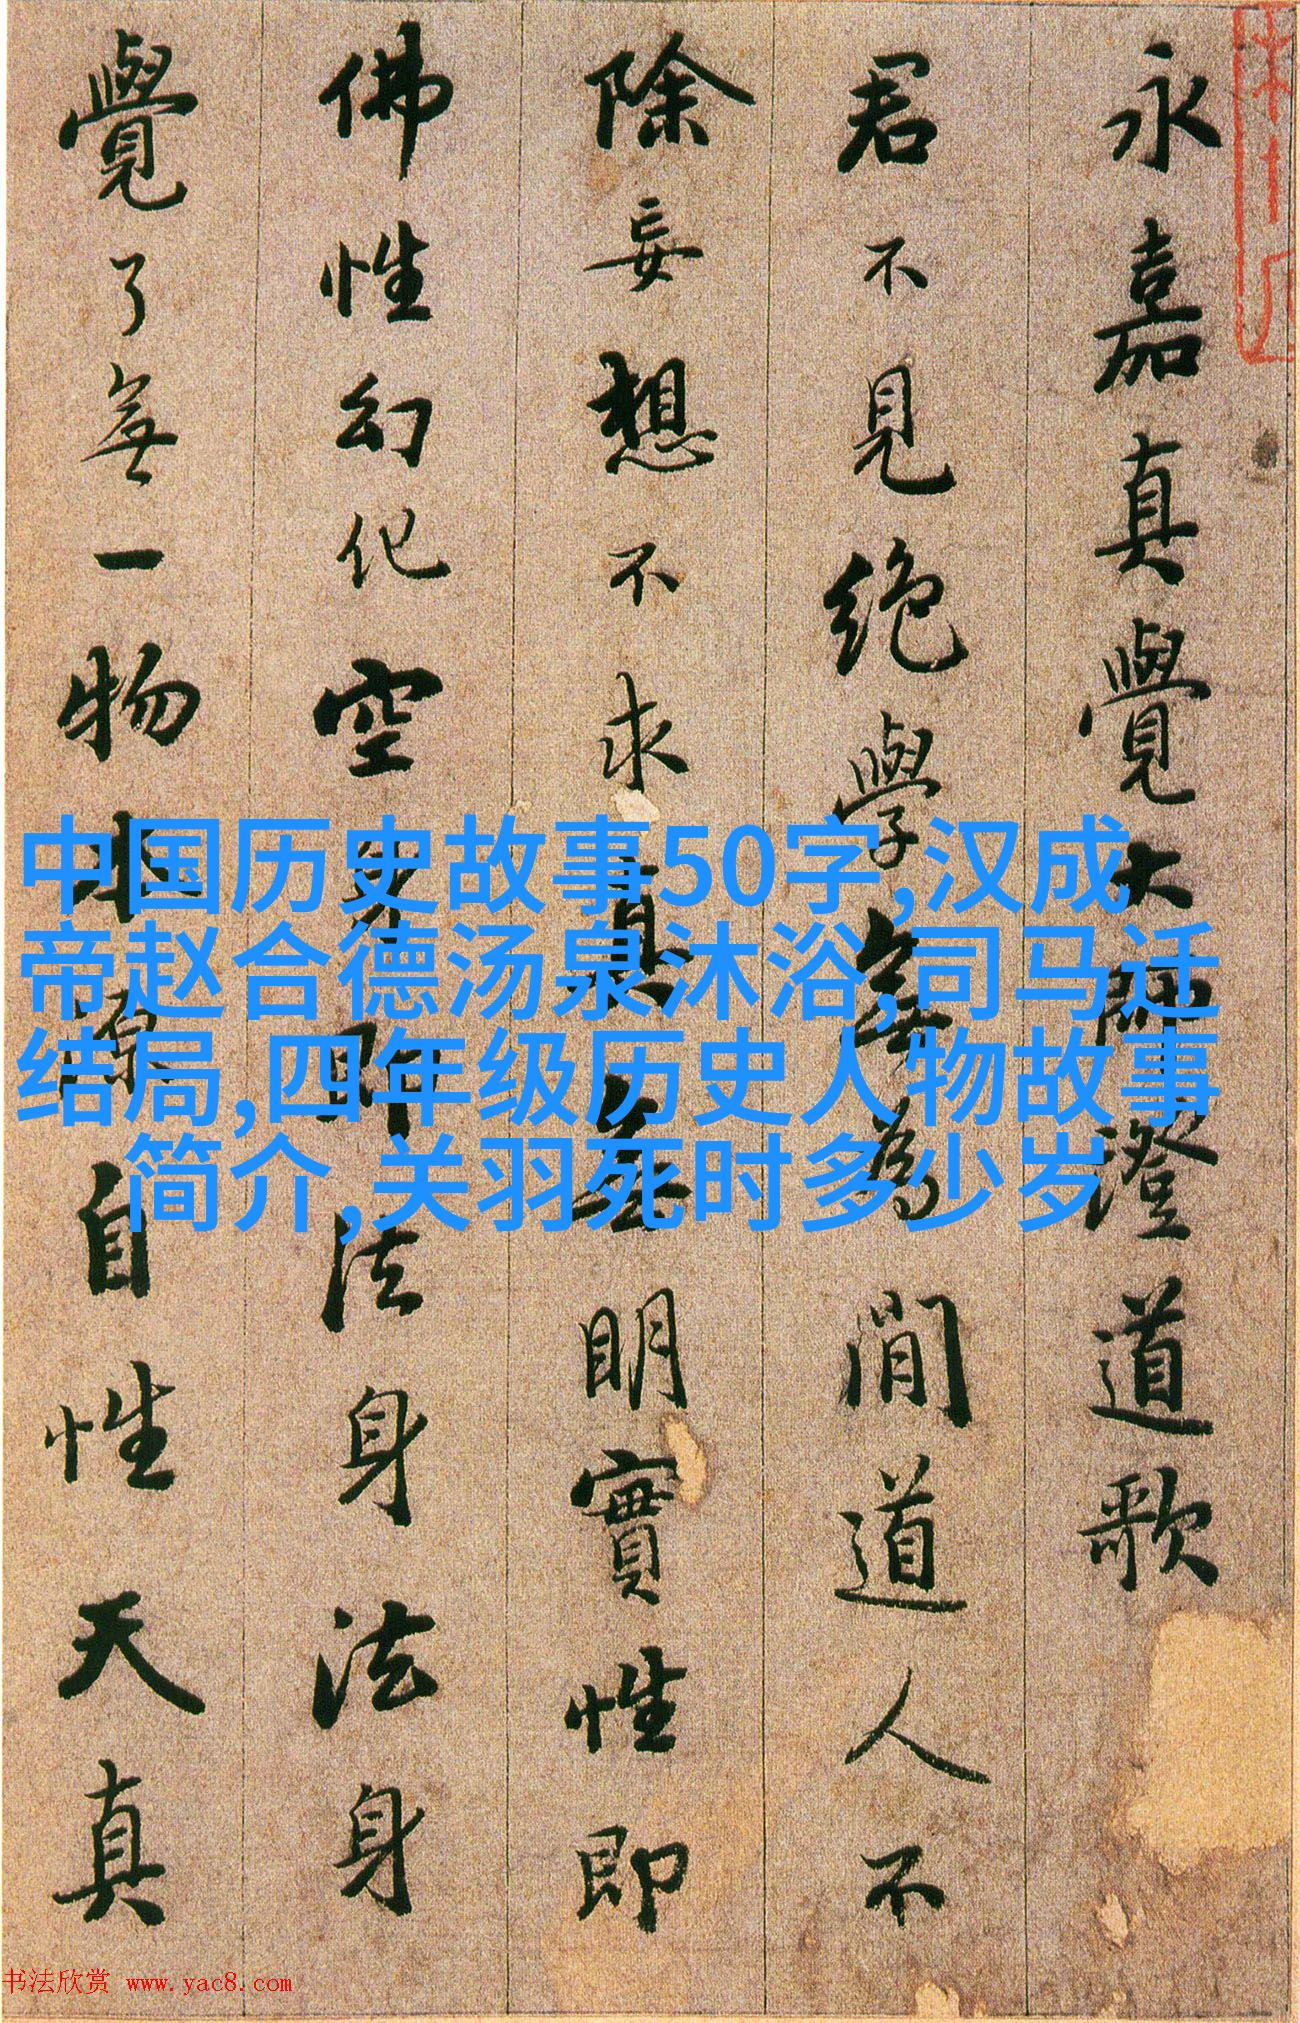 永嘉真覺大師證道歌
君不見絕學無為閒道人不
除妄想不求真無明實性即
佛性幻化空身即法身法身
覺了無一物本源自性天真
中国历史故事50字,汉成
帝赵合德汤泉沐浴,司马迁
结局,四年级历史人物故事
简介,关羽死时多少岁
书法欣赏 www.yac8.com